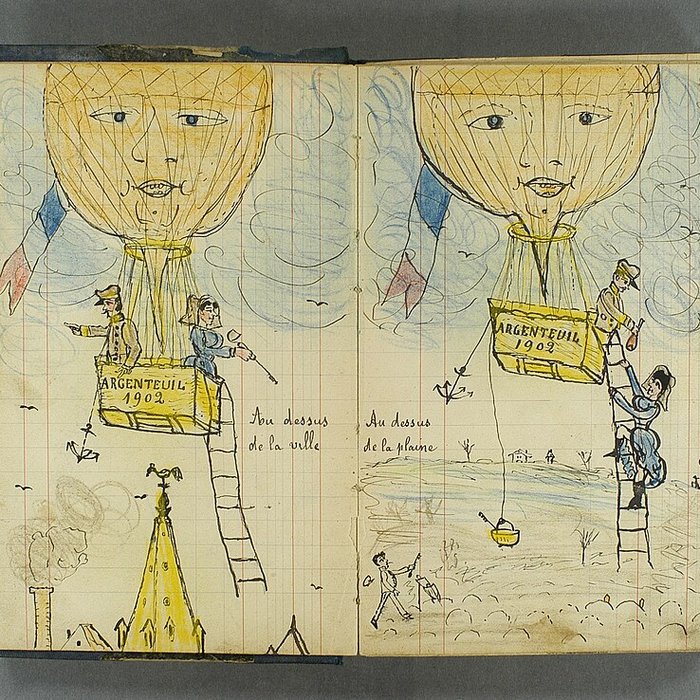 ARGENTEUIL
1902
Au dessus
de la ville
ARGENTEUIL
1902
Au dessus
de la plaine